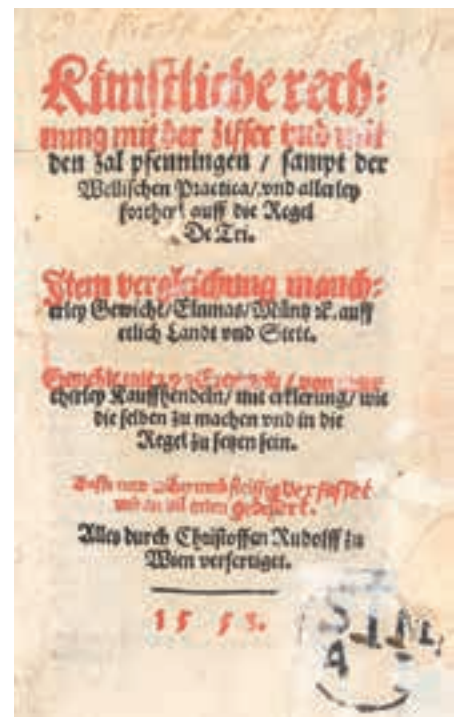 Künstliche rech⸗
nung mit der ziffer vnd mit
den zal pfenningen / sampt der
Wellischen Practica / vnd allerley
forthel auff die Regel
De Tri.
Item vergleichung manch⸗
erley Gewicht / Elnmas / Müntz ꝛc. auff
etlich Landt vnd Stett.
Gemehrt mit
cherley Kauffhendeln / mit erklerung / wie
die selben zu machen vnd in die
Regel zu setzen sein.
fleissig
vnd an vil orten gebessert.
Alles durch Christoffen Rudolff zu
Wien verfertiget.
1 5 5 3.